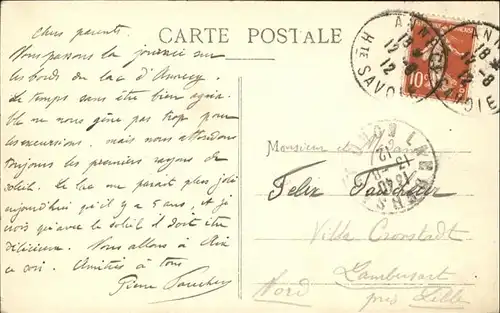 CARTE POSTALE
Chers parents.
Nous passons la journée sur
les bords du lac d'Annecy.
Le temps sans être bien
ne nous gêne pas trop pour
les excursions. mais nous attendons
toujours les premiers rayons de
soleil. Le lac me parait plus joli
aujourd'hui qu'il y a 5 ans, et je
crois qu'avec le soleil il doit être
délicieux. Nous allons à Aix
ce soir. Amitiés à tous
Pierre
ANNECY
18
12-8
12
HTE SAVOIE
10c
Monsieur et Madame
Felix
Villa Cronstadt
Lambersart
près Lille
Nord